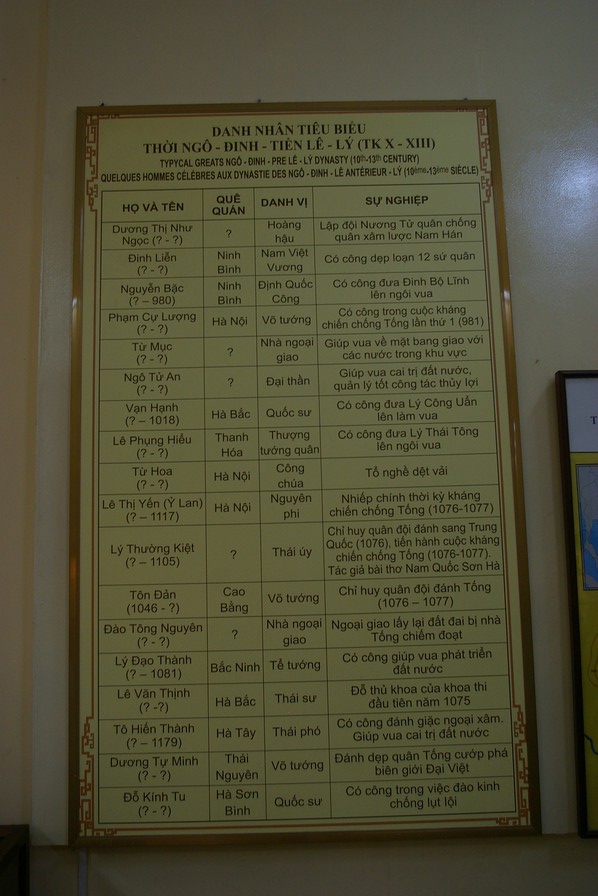 DANH NHÂN TIÊU BIỂU
THỜI NGÔ - ĐINH - TIỀN LÊ - LÝ (TK X - XIII)
TYPYCAL GREATS NGÔ - ĐINH - PRE LÊ - LÝ DYNASTY (10th-13th CENTURY)
QUELQUES HOMMES CÉLÈBRES AUX DYNASTIE DES NGÔ - ĐINH - LÊ ANTÉRIEUR - LÝ (10ème-13ème SIÈCLE)
HỌ VÀ TÊN
QUÊ
QUÁN
DANH VỊ
SỰ NGHIỆP
Dương Thị Như
Ngọc (? - ?)
?
Hoàng
hậu
Lập đội Nương Tử quân chống
quân xâm lược Nam Hán
Đinh Liễn
(? - ?)
Ninh
Bình
Nam Việt
Vương
Có công dẹp loạn 12 sứ quân
Nguyễn Bặc
(? – 980)
Ninh
Bình
Định Quốc
Công
Có công đưa Đinh Bộ Lĩnh
lên ngôi vua
Phạm Cự Lượng
(? - ?)
Hà Nội
Võ tướng
Có công trong cuộc kháng
chiến chống Tống lần thứ 1 (981)
Từ Mục
(? - ?)
?
Nhà ngoại
giao
Giúp vua về mặt bang giao với
các nước trong khu vực
Ngô Tử An
(? - ?)
?
Đại thần
Giúp vua cai trị đất nước,
quản lý tốt công tác thủy lợi
Vạn Hạnh
(? – 1018)
Hà Bắc
Quốc sư
Có công đưa Lý Công Uẩn
lên làm vua
Lê Phụng Hiểu
(? - ?)
Thanh
Hóa
Thượng
tướng quân
Có công đưa Lý Thái Tông
lên ngôi vua
Từ Hoa
(? - ?)
Hà Nội
Công
chúa
Tổ nghề dệt vải
Lê Thị Yến (Ỷ Lan)
(? – 1117)
Hà Nội
Nguyên
phi
Nhiếp chính thời kỳ kháng
chiến chống Tống (1076-1077)
Lý Thường Kiệt
(? – 1105)
?
Thái úy
Chỉ huy quân đội đánh sang Trung
Quốc (1076), tiến hành cuộc kháng
chiến chống Tống (1076-1077).
Tác giả bài thơ Nam Quốc Sơn Hà
Tôn Đản
(1046 - ?)
Cao
Bằng
Võ tướng
Chỉ huy quân đội đánh Tống
(1076 – 1077)
Đào Tông Nguyên
(? - ?)
?
Nhà ngoại
giao
Ngoại giao lấy lại đất đai bị nhà
Tống chiếm đoạt
Lý Đạo Thành
(? – 1081)
Bắc Ninh
Tể tướng
Có công giúp vua phát triển
đất nước
Lê Văn Thịnh
(? -?)
Hà Bắc
Thái sư
Đỗ thủ khoa của khoa thi
đầu tiên năm 1075
Tô Hiến Thành
(? – 1179)
Hà Tây
Thái phó
Có công đánh giặc ngoại xâm.
Giúp vua cai trị đất nước
Dương Tự Minh
(? - ?)
Thái
Nguyên
Võ tướng
Đánh dẹp quân Tống cướp phá
biên giới Đại Việt
Đỗ Kính Tu
(? - ?)
Hà Sơn
Bình
Quốc sư
Có công trong việc đào kinh
chống lụt lội